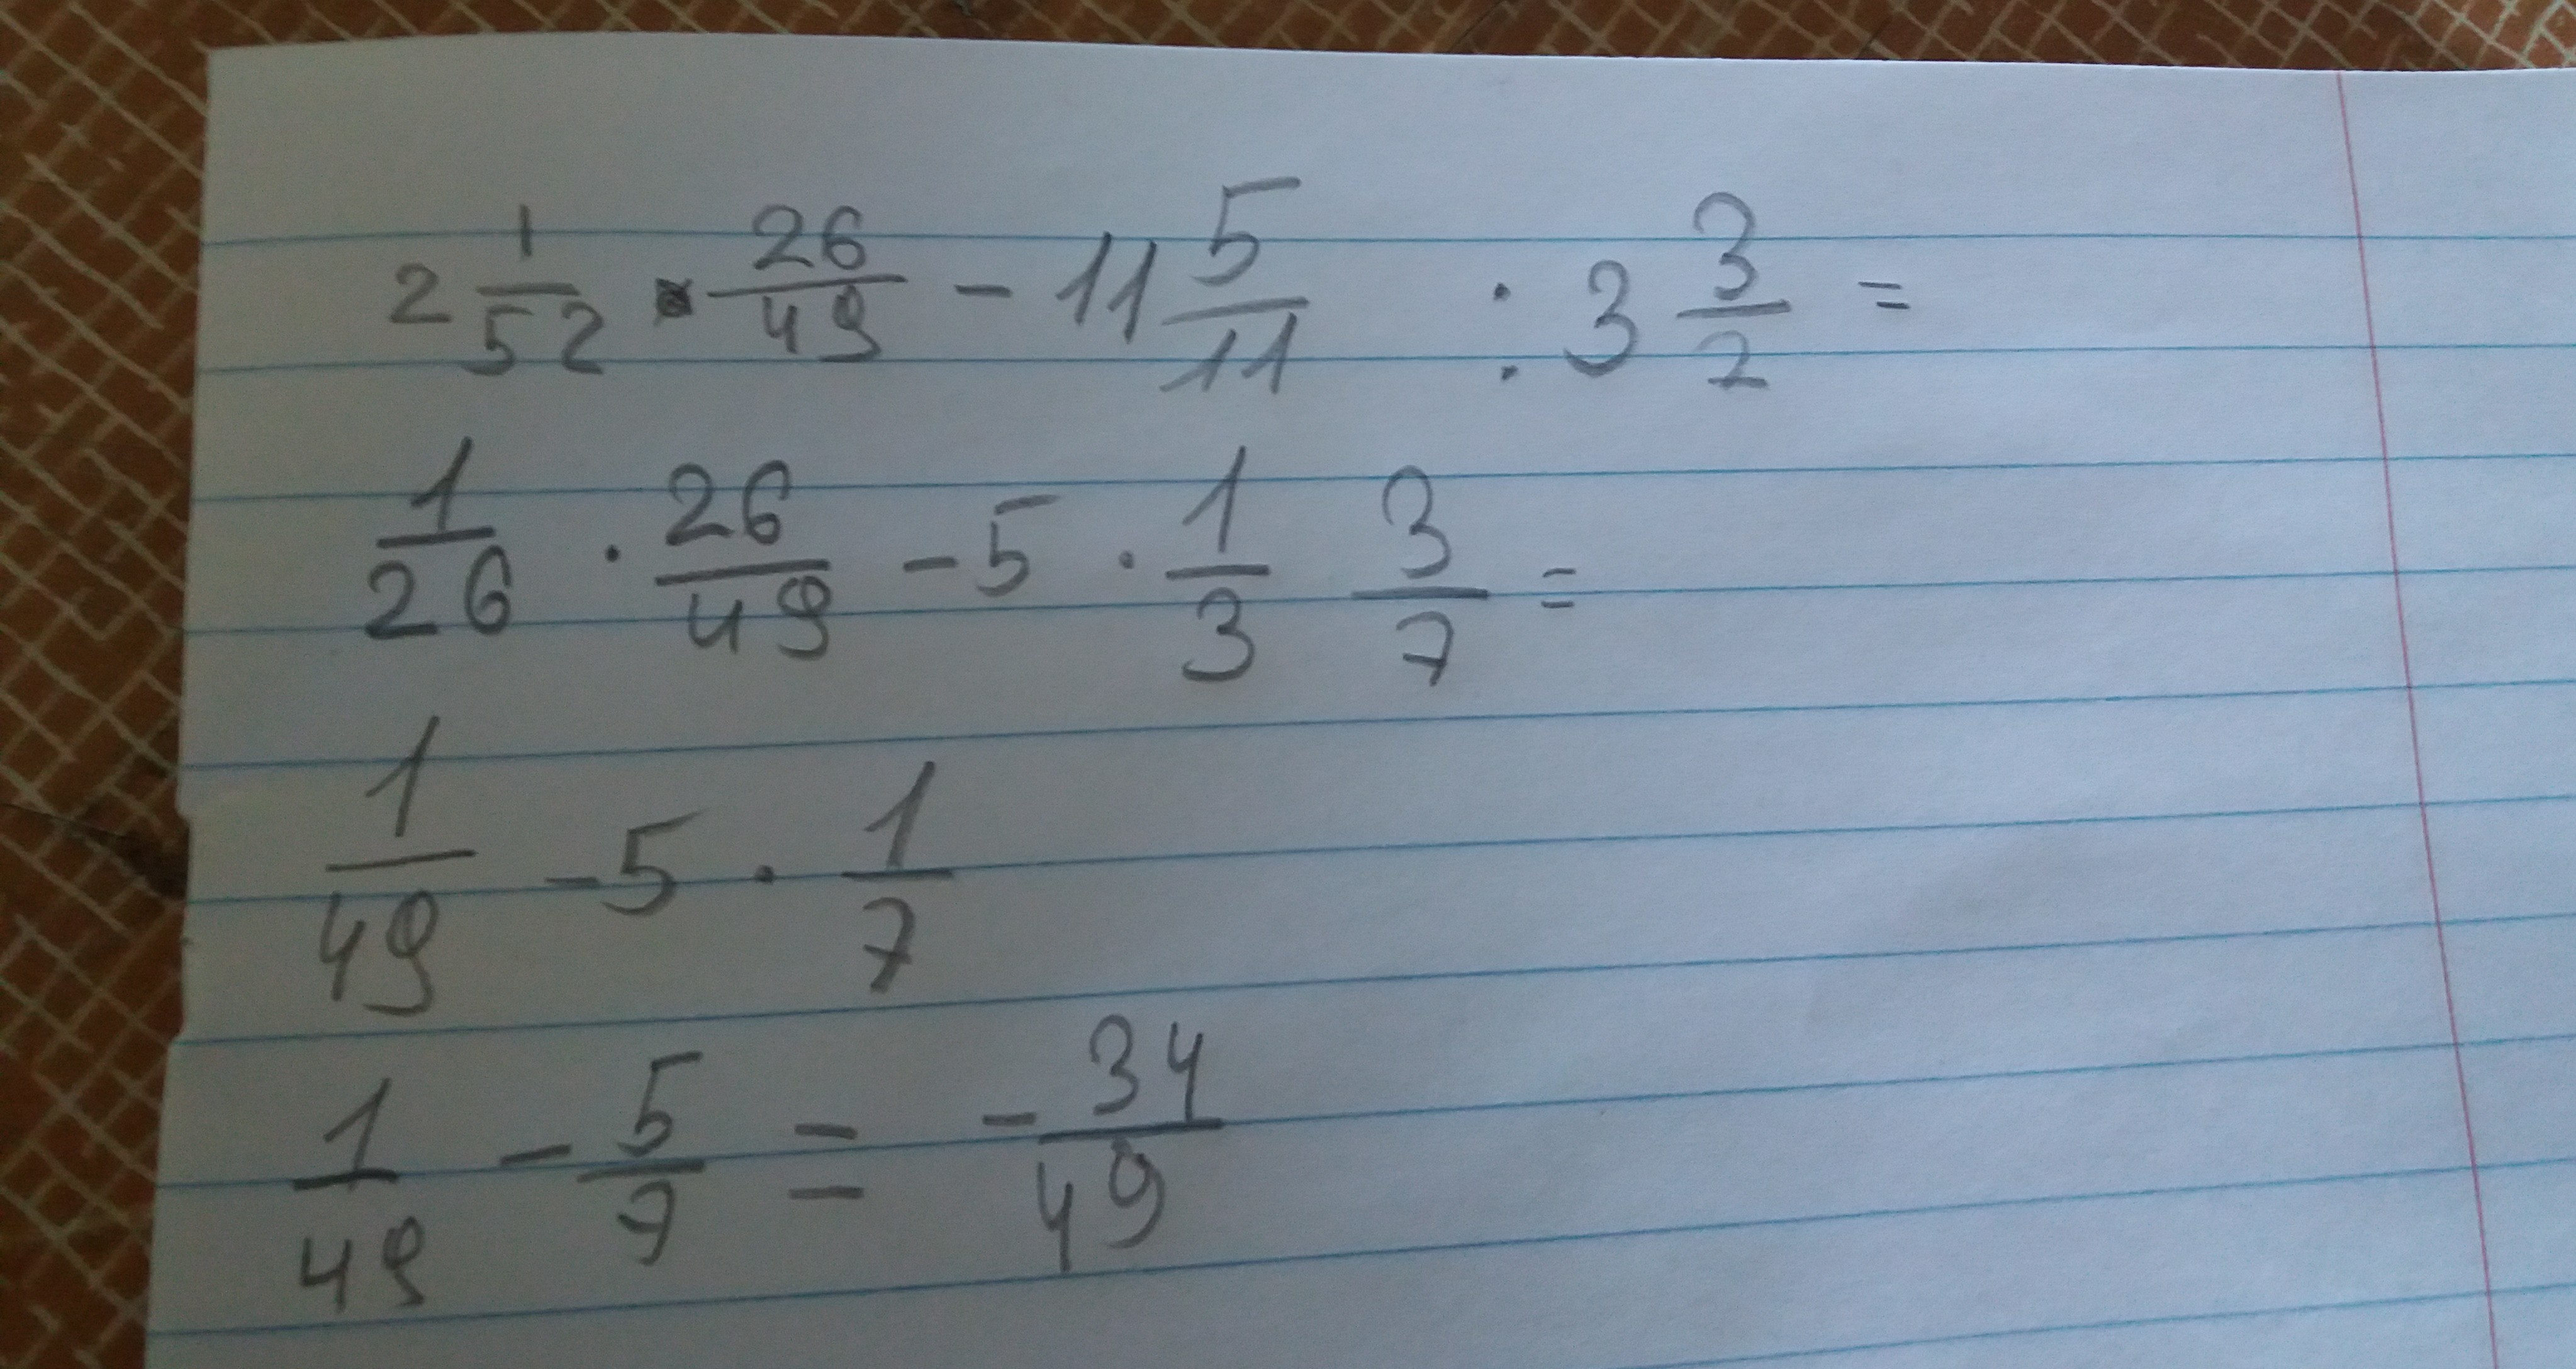 2 1/52 · 26/49 - 11 5/11 : 3 3/2 =
1/26 · 26/49 - 5 · 1/3 3/7 =
1/49 - 5 · 1/7
1/49 - 5/7 = - 34/49